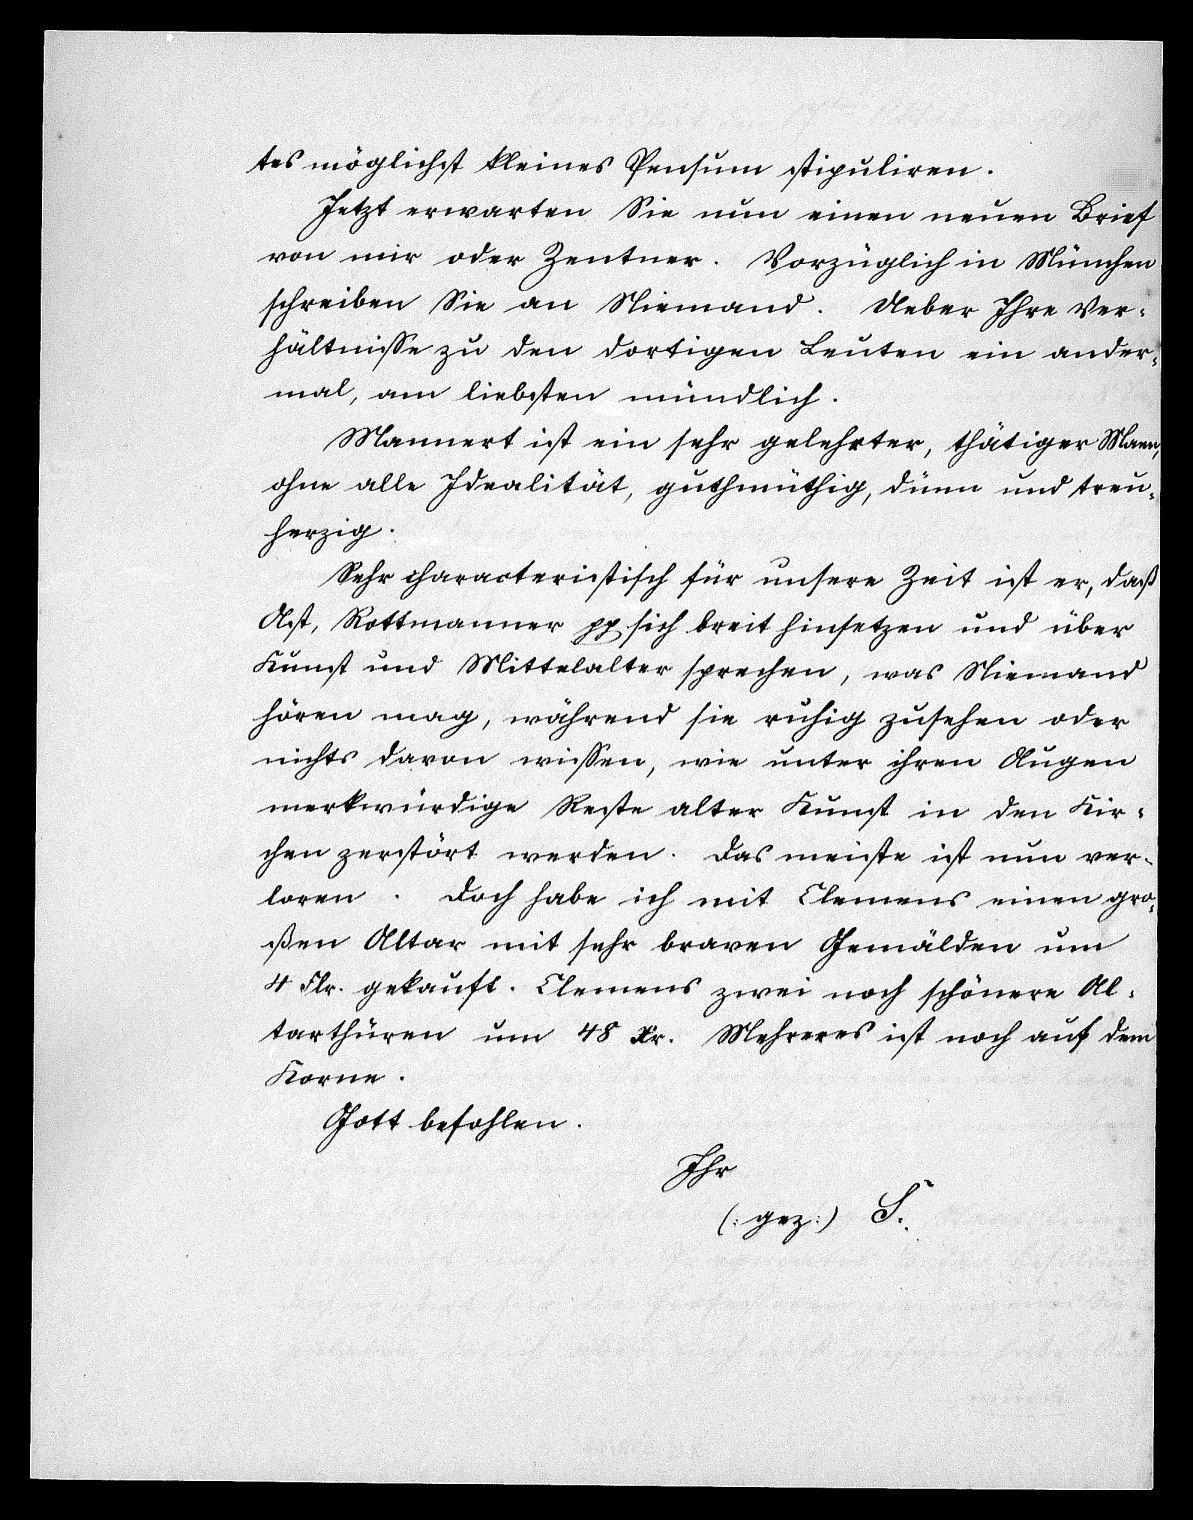 tes möglichst kleines Pensum stipuliren.
Jetzt erwarten Sie nun einen neuen Brief
von mir oder Zentner. Vorzüglich in München
schreiben Sie an Niemand. Ueber Ihre Ver-
hältnisse zu den dortigen Leuten ein ander-
mal, am liebsten mündlich.
Mannert ist ein sehr gelehrter, thätiger Mann,
ohne alle Idealität, guthmüthig, dünn und treu-
herzig.
Sehr characteristisch für unsere Zeit ist er, daß
Ast, Rottmanner pp sich breit hinsetzen und über
Kunst und Mittelalter sprechen, was Niemand
hören mag, während sie ruhig zusehen oder
nichts davon wissen, wie unter ihren Augen
merkwürdige Reste alter Kunst in den Kir-
chen zerstört werden. Das meiste ist nun ver-
loren. Doch habe ich mit Clemens einen gro-
ßen Altar mit sehr braven Gemälden um
4 Flr. gekauft. Clemens zwei noch schönere Al-
tarthüren um 48 Xr. Mehreres ist noch auf dem
Korne.
Gott befohlen.
Ihr
(: gez:) S.